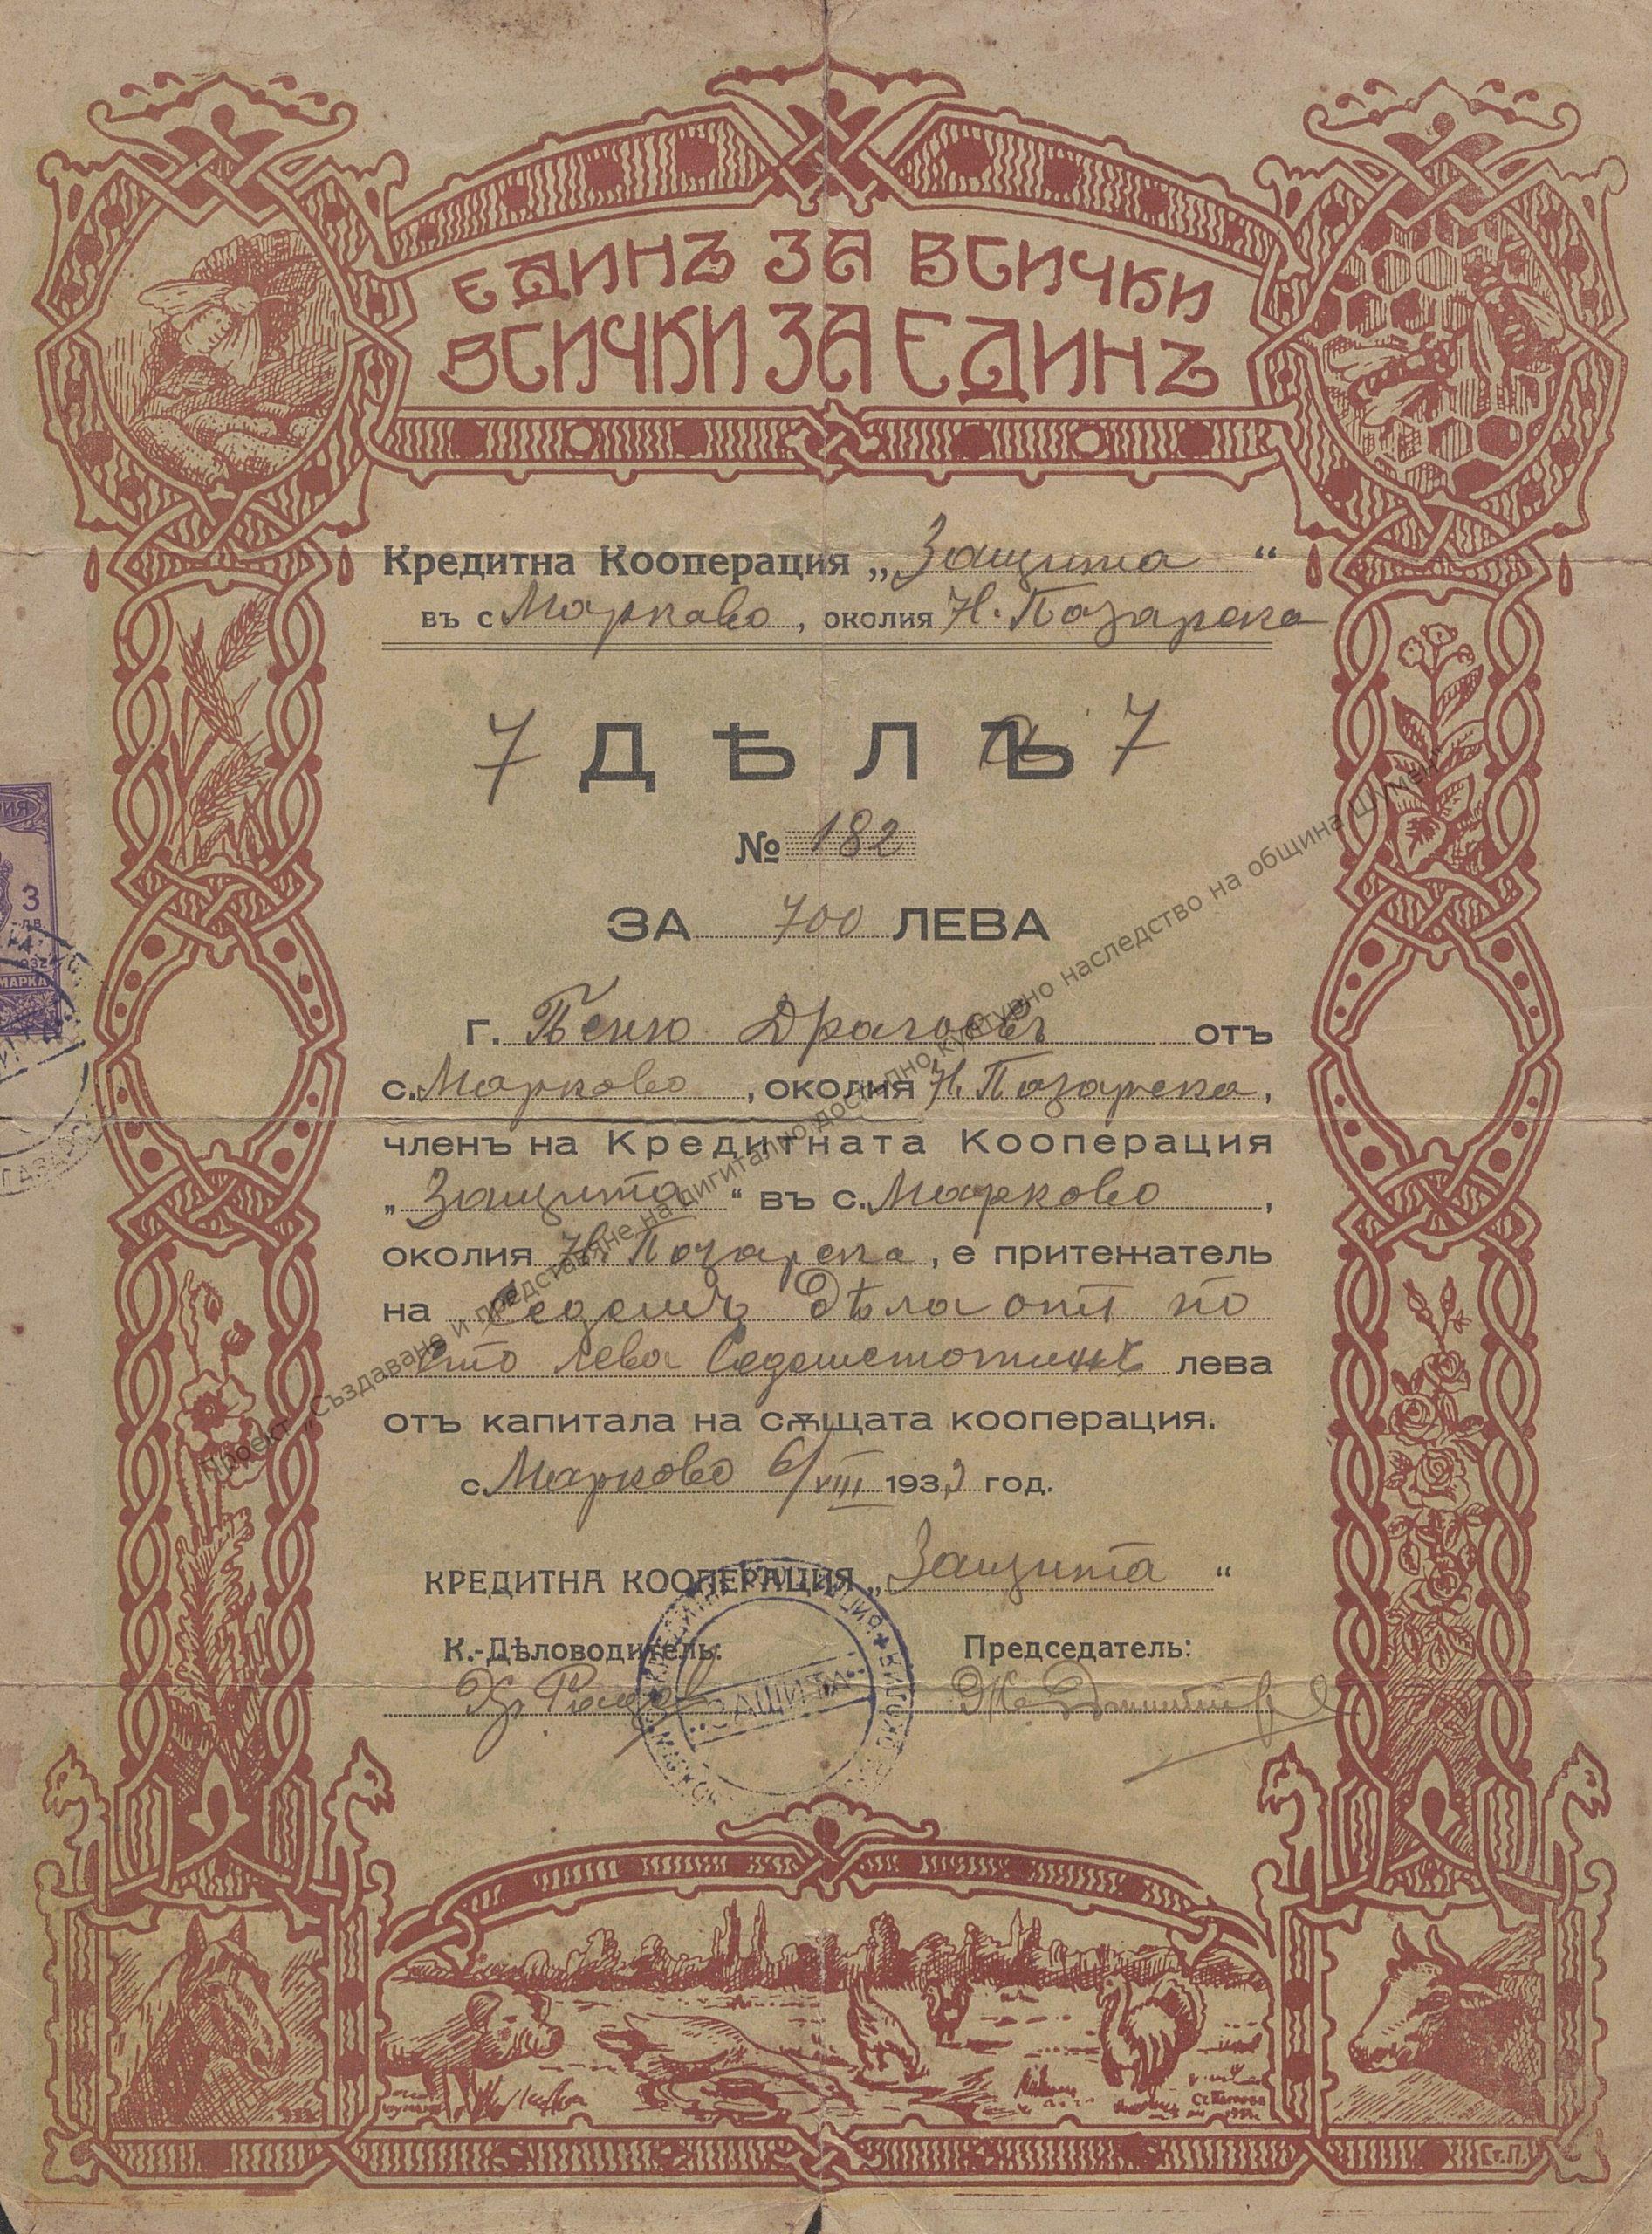 ЕДИНЪ ЗА ВСИЧКИ
ВСИЧКИ ЗА ЕДИНЪ
Кредитна Кооперация „Защита“
въ с Марково, околия Н. Пазарска
7 ДѢЛЪа 7
№ 182
ЗА 700 ЛЕВА
Г. Пеню Драговъ отъ
с. Марково, околия Н. Пазарска,
членъ на Кредитната Кооперация
„Защита“ въ с. Марково,
околия Н. Пазарска, е притежатель
на Седемь дѣла отъ по
сто лева Седемстотинъ лева
отъ капитала на сѫщата кооперация.
с. Марково 6/VIII 1933 год.
КРЕДИТНА КООПЕРАЦИЯ „Защита“
К.-Дѣловодитель: Председатель:
„ЗАЩИТА“
3
ЛВ.
1932
МАРКА
Ст.П.
Проект „Създаване и представяне на дигитално достъпно културно наследство на община Шумен“